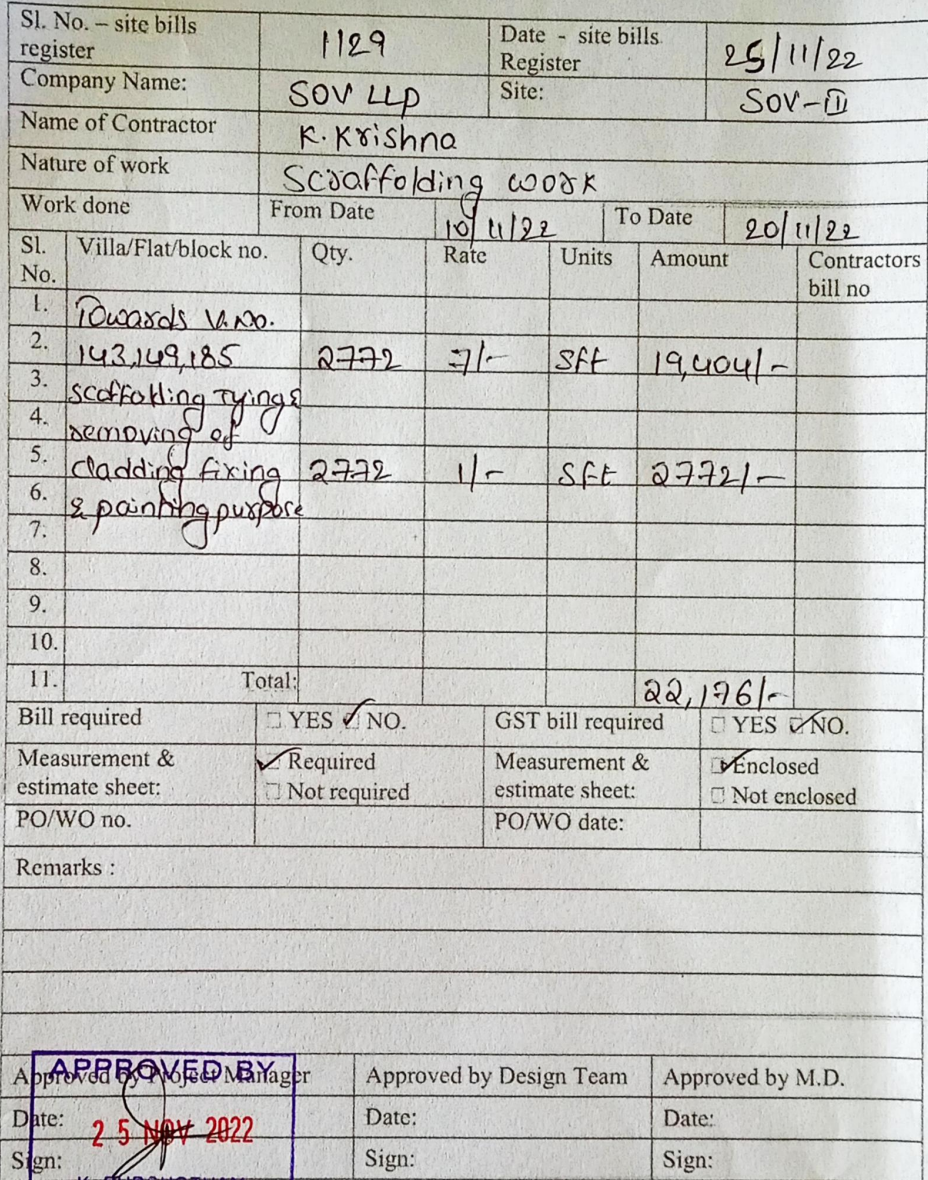 Sl. No. – site bills register 1129 Date - site bills Register 25/11/22
Company Name: SOV LLP Site: SOV-III
Name of Contractor K. Krishna
Nature of work Scraffolding work
Work done From Date 10/11/22 To Date 20/11/22
Sl. No. Villa/Flat/block no. Qty. Rate Units Amount Contractors bill no
1. Towards V.No.
2. 143,149,185 2772 7/- Sft 19,404/-
3. Scaffolding Tying &
4. removing of
5. cladding fixing 2772 1/- Sft 2772/-
6. & painting purpose
7.
8.
9.
10.
11. Total: 22,176/-
Bill required YES NO. GST bill required YES NO.
Measurement & estimate sheet: Required Measurement & estimate sheet: Enclosed
Not required Not enclosed
PO/WO no. PO/WO date:
Remarks :
APPROVED BY
Approved by Project Manager Approved by Design Team Approved by M.D.
Date: 25 NOV 2022 Date: Date:
Sign: Sign: Sign: